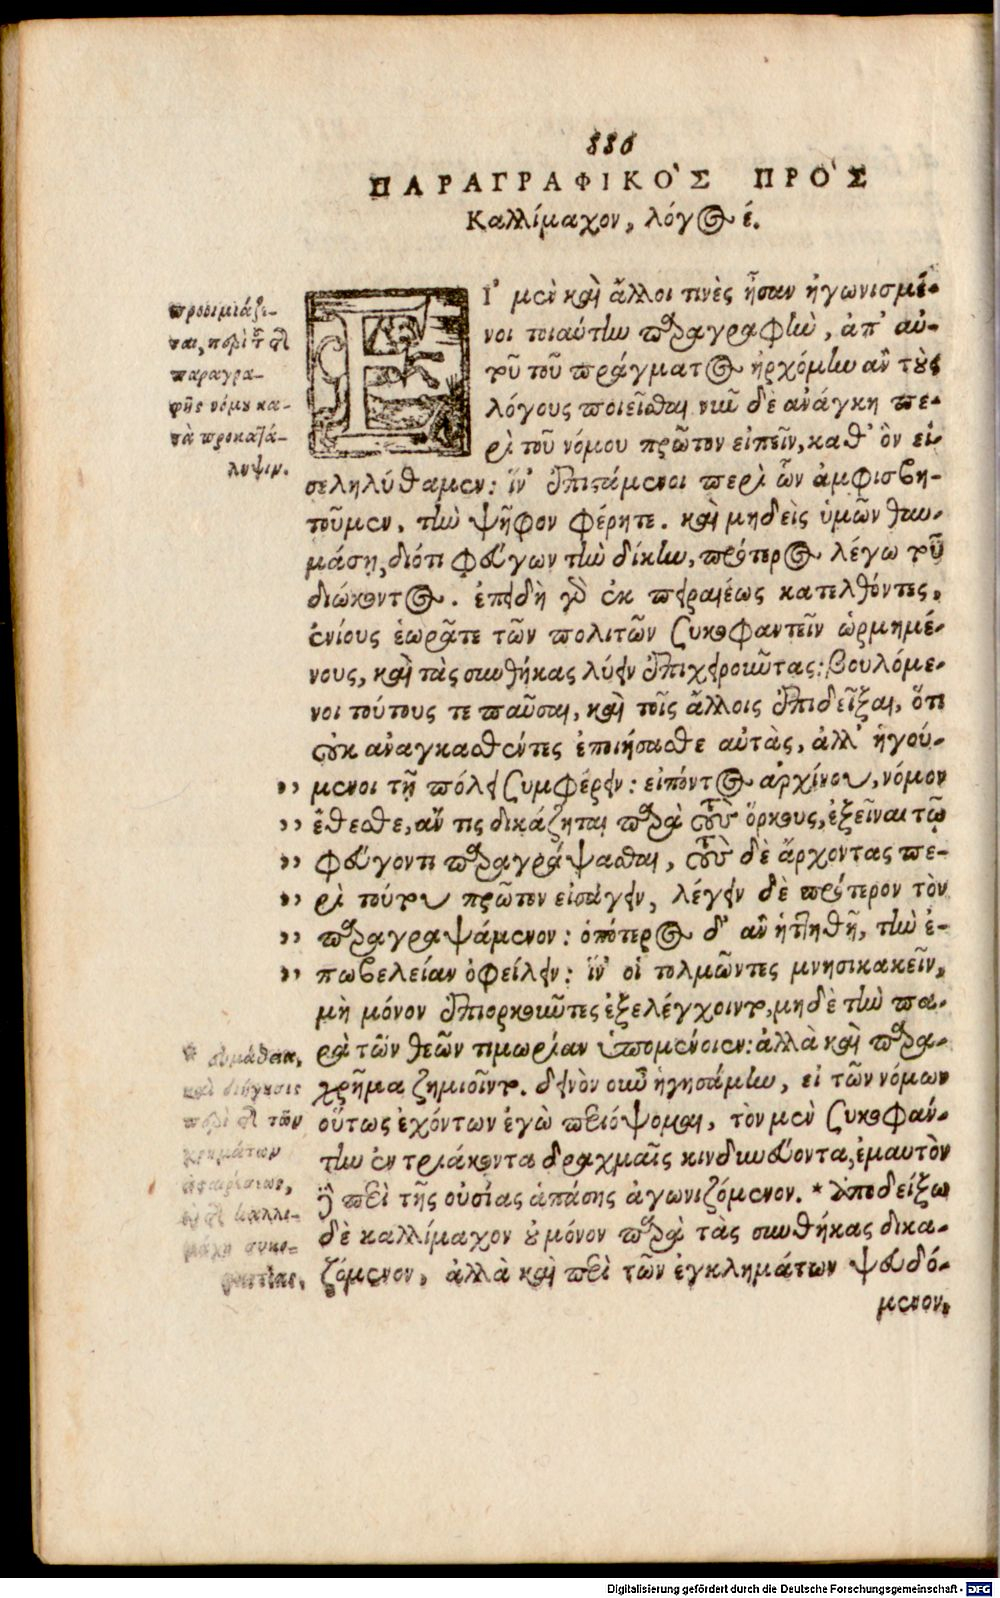 886
ΠΑΡΑΓΡΑΦΙΚΟ'Σ ΠΡΟ'Σ
Καλλίμαχον, λόγος έ.
ΕΙ' μὲν καὶ ἄλλοι τινὲς ἦσαν ἠγωνισμέ-
νοι τοιαύτην παραγραφὴν, ἀπ' αὐ-
τοῦ τοῦ πράγματος ἠρχόμην ἂν τοὺς
λόγους ποιεῖσθαι νῦν δὲ ἀνάγκη πε-
ρὶ τοῦ νόμου πρῶτον εἰπεῖν, καθ' ὃν εἰ-
σεληλύθαμεν: ἵν' ἐπιστάμενοι περὶ ὧν ἀμφισβη-
τοῦμεν, τὴν ψῆφον φέρητε. καὶ μηδεὶς ὑμῶν θαυ-
μάσῃ, διότι φεύγων τὴν δίκην, πρότερος λέγω τοῦ
διώκοντος. ἐπειδὴ γὰρ ἐκ πειραιέως κατελθόντες,
ἐνίους ἑωρᾶτε τῶν πολιτῶν συκοφαντεῖν ὡρμημέ-
νους, καὶ τὰς συνθήκας λύειν ἐπιχειροῦντας: βουλόμε-
νοι τούτους τε παῦσαι, καὶ τοῖς ἄλλοις ἐπιδεῖξαι, ὅτι
οὐκ ἀναγκασθέντες ἐποιήσασθε αὐτὰς, ἀλλ' ἡγού-
,, μενοι τῇ πόλει συμφέρειν: εἰπόντος ἀρχίνου, νόμον
,, ἔθεσθε, ἄν τις δικάζηται παρὰ τοὺς ὅρκους, ἐξεῖναι τῷ
,, φεύγοντι παραγράψασθαι, τοὺς δὲ ἄρχοντας πε-
,, ρὶ τούτου πρῶτον εἰσάγειν, λέγειν δὲ πρότερον τὸν
,, παραγραψάμενον: ὁπότερος δ' ἂν ἡττηθῇ, τὴν ἐ-
,, πωβελείαν ὀφείλειν: ἵν' οἱ τολμῶντες μνησικακεῖν,
μὴ μόνον ἐπιορκοῦντες ἐξελέγχοιντο, μηδὲ τὴν πα-
ρὰ τῶν θεῶν τιμωρίαν ὑπομένοιεν: ἀλλὰ καὶ παρα-
χρῆμα ζημιοῖντο. δεινὸν οὖν ἡγησάμην, εἰ τῶν νόμων
οὕτως ἐχόντων ἐγὼ περιόψομαι, τὸν μὲν συκοφάν-
την ἐν τριάκοντα δραχμαῖς κινδυνεύοντα, ἐμαυτὸν
δὲ περὶ τῆς οὐσίας ἁπάσης ἀγωνιζόμενον. * Ἀποδείξω
δὲ καλλίμαχον οὐ μόνον παρὰ τὰς συνθήκας δικα-
ζόμενον, ἀλλὰ καὶ περὶ τῶν ἐγκλημάτων ψευδό-
μενον,
προοιμιάζε-
ται, περὶ τοῦ τῆς
παραγρα-
φῆς νόμου κα-
τὰ προκατά-
ληψιν.
καὶ διήγησις
περὶ τῶν
χρημάτων
Digitalisierung gefördert durch die Deutsche Forschungsgemeinschaft - DFG